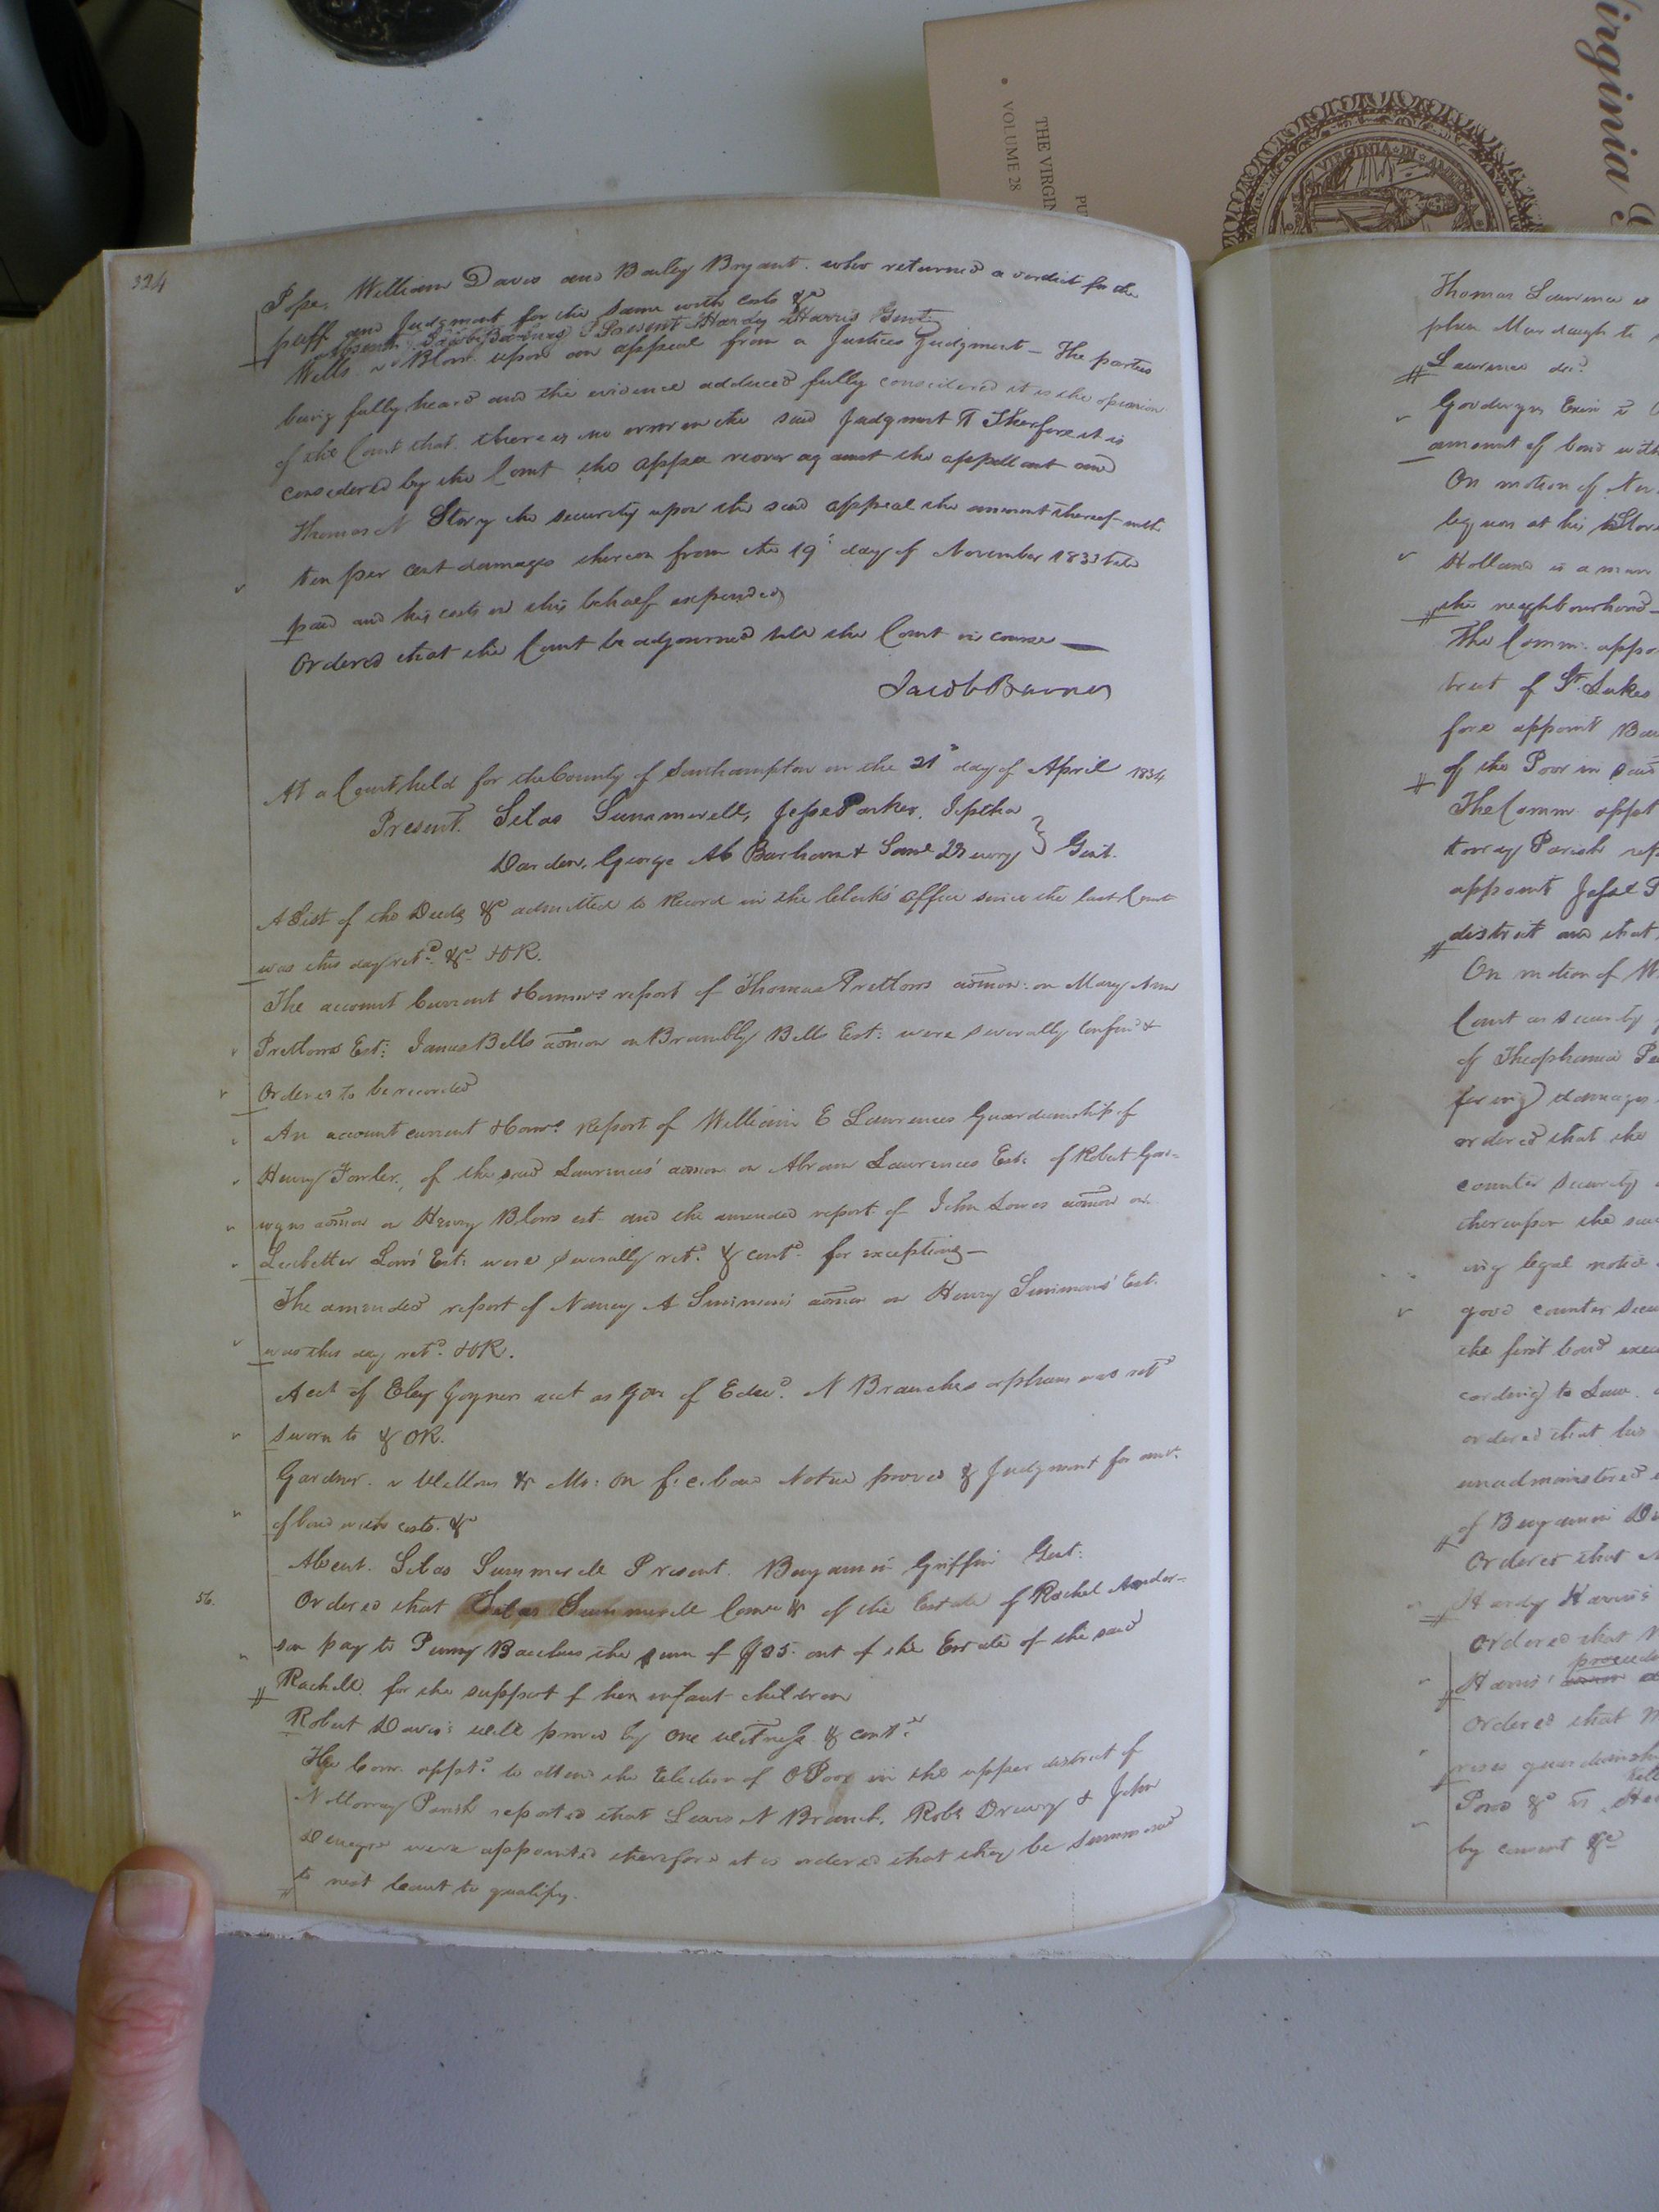 324
Pope, William Davis and Barley Bryant. who returned a verdict for the
plff and Judgment for the same with costs &c
Absent Jacob Barnes Present Hardy Harris Gent
Wells v Blow upon an appeal from a Justices Judgment — The parties
being fully heard and the evidence adduced fully considered it is the opinion
of the Court that there is no error in the said Judgment Therefore it is
considered by the Court the appee recover against the appellant and
Thomas N Story the security upon the said appeal the amount thereof with
ten per cent damages thereon from the 19th day of November 1833 till
paid and his costs in this behalf expended
Ordered that the Court be adjourned till the Court in course —
Jacob Barnes
At a Court held for the County of Southampton on the 21st day of April 1834
Present. Silas Summerell, Jesse Parker, Jeptha
Darden, George Barham & Saml Drewry } Gent.
A List of the Deeds &c admitted to Record in the Clerks office since the last Court
was this day retd. &c. & OR.
The account Current & Commrs report of Thomas Pretlows admon: on Mary Ann
Pretlows Est: James Bells admon on Brambly Bells Est: were severally confmd &
Ordered to be recorded
An account current & Comrs report of William E Lawrences Guardianship of
Henry Fowler, of the said Lawrences' admon on Abram Lawrences Est: of Robert Good=
wyns admon on Henry Blows est and the amended report of John Lows admon on
Ledbetter Lows' Est: were severally retd. & contd. for exceptions —
The amended report of Nancy A Simmons' admon on Henry Simmons' Est.
was this day retd. & OR.
Acct of Eley Joyner acct as Gdn of Edwd. N Branches orphans was retd
sworn to & OR.
Gardner. v &c Mo: on f.c. bond Notice proved & Judgment for amt.
of bond with costs. &c
Absent. Silas Summerell Present. Benjamin Griffin Gent:
56. Ordered that Silas Summerell Comr &c of the Estate of Rachel Ander-
son pay to Penny Bacchus the sum of $25. out of the Estate of the said
Rachell. for the support of her infant children
Robert Davis's will proved by one witness & contd.
The Comr. apptd. to attend the Election of O Poor in the upper district of
Nottoway Parish reported that Lewis N Branch, Robt Drewry & John
were appointed therefore it is ordered that they be summoned
to next Court to qualify.
Virginia
THE VIRGIN
VOLUME 28
PU
VIRGINIA IN AM
Thomas Lawrence
plea
Lawrence decd
Goodwyns Exor v
amount of bond with
On motion of
liquors at his Store
Holland is a man
the neighbourhood —
The Comm: appo
trict of St. Lukes
fore appoint
of the Poor in said
The Comm. appt
toway Parish rep
appoints Jesse P
district and that
On motion of W
Court as security
of Theophania
fering damages
ordered that the
counter security
thereupon the said
ing legal notice
good counter secu
the first bond exec
cording to Law.
ordered that his
unadministered
of Benjamin
Ordered that
Hardy Harris's
Ordered that
proceed
Harris'
Ordered that
guardianship
Pond &c vs
by consent &c